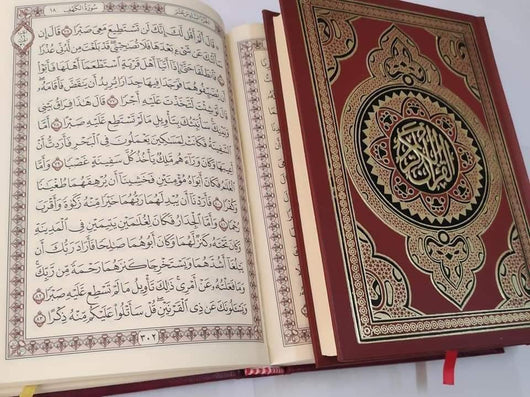 الجزء السادس عشر
سورة الكهف
١٨
۞ قَالَ أَلَمْ أَقُل لَّكَ إِنَّكَ لَن تَسْتَطِيعَ مَعِيَ صَبْرًا ٧٥ قَالَ إِن
سَأَلْتُكَ عَن شَيْءٍ بَعْدَهَا فَلَا تُصَٰحِبْنِي ۖ قَدْ بَلَغْتَ مِن لَّدُنِّي عُذْرًا
٧٦ فَٱنطَلَقَا حَتَّىٰٓ إِذَآ أَتَيَآ أَهْلَ قَرْيَةٍ ٱسْتَطْعَمَآ أَهْلَهَا فَأَبَوْا۟
أَن يُضَيِّفُوهُمَا فَوَجَدَا فِيهَا جِدَارًا يُرِيدُ أَن يَنقَضَّ فَأَقَامَهُۥ ۖ قَالَ
لَوْ شِئْتَ لَتَّخَذْتَ عَلَيْهِ أَجْرًا ٧٧ قَالَ هَٰذَا فِرَاقُ بَيْنِي
وَبَيْنِكَ ۚ سَأُنَبِّئُكَ بِتَأْوِيلِ مَا لَمْ تَسْتَطِع عَّلَيْهِ صَبْرًا ٧٨ أَمَّا
ٱلسَّفِينَةُ فَكَانَتْ لِمَسَٰكِينَ يَعْمَلُونَ فِي ٱلْبَحْرِ فَأَرَدتُّ أَنْ
أَعِيبَهَا وَكَانَ وَرَآءَهُم مَّلِكٌ يَأْخُذُ كُلَّ سَفِينَةٍ غَصْبًا ٧٩ وَأَمَّا
ٱلْغُلَٰمُ فَكَانَ أَبَوَاهُ مُؤْمِنَيْنِ فَخَشِينَآ أَن يُرْهِقَهُمَا طُغْيَٰنًا
وَكُفْرًا ٨٠ فَأَرَدْنَآ أَن يُبْدِلَهُمَا رَبُّهُمَا خَيْرًا مِّنْهُ زَكَوٰةً وَأَقْرَبَ
رُحْمًا ٨١ وَأَمَّا ٱلْجِدَارُ فَكَانَ لِغُلَٰمَيْنِ يَتِيمَيْنِ فِي ٱلْمَدِينَةِ
وَكَانَ تَحْتَهُۥ كَنزٌ لَّهُمَا وَكَانَ أَبُوهُمَا صَٰلِحًا فَأَرَادَ رَبُّكَ أَن
يَبْلُغَآ أَشُدَّهُمَا وَيَسْتَخْرِجَا كَنزَهُمَا رَحْمَةً مِّن رَّبِّكَ ۚ
وَمَا فَعَلْتُهُۥ عَنْ أَمْرِي ۚ ذَٰلِكَ تَأْوِيلُ مَا لَمْ تَسْطِع عَّلَيْهِ صَبْرًا ٨٢
وَيَسْـَٔلُونَكَ عَن ذِي ٱلْقَرْنَيْنِ ۖ قُلْ سَأَتْلُوا۟ عَلَيْكُم مِّنْهُ ذِكْرًا ٨٣
٣٠٢
القرآن الكريم